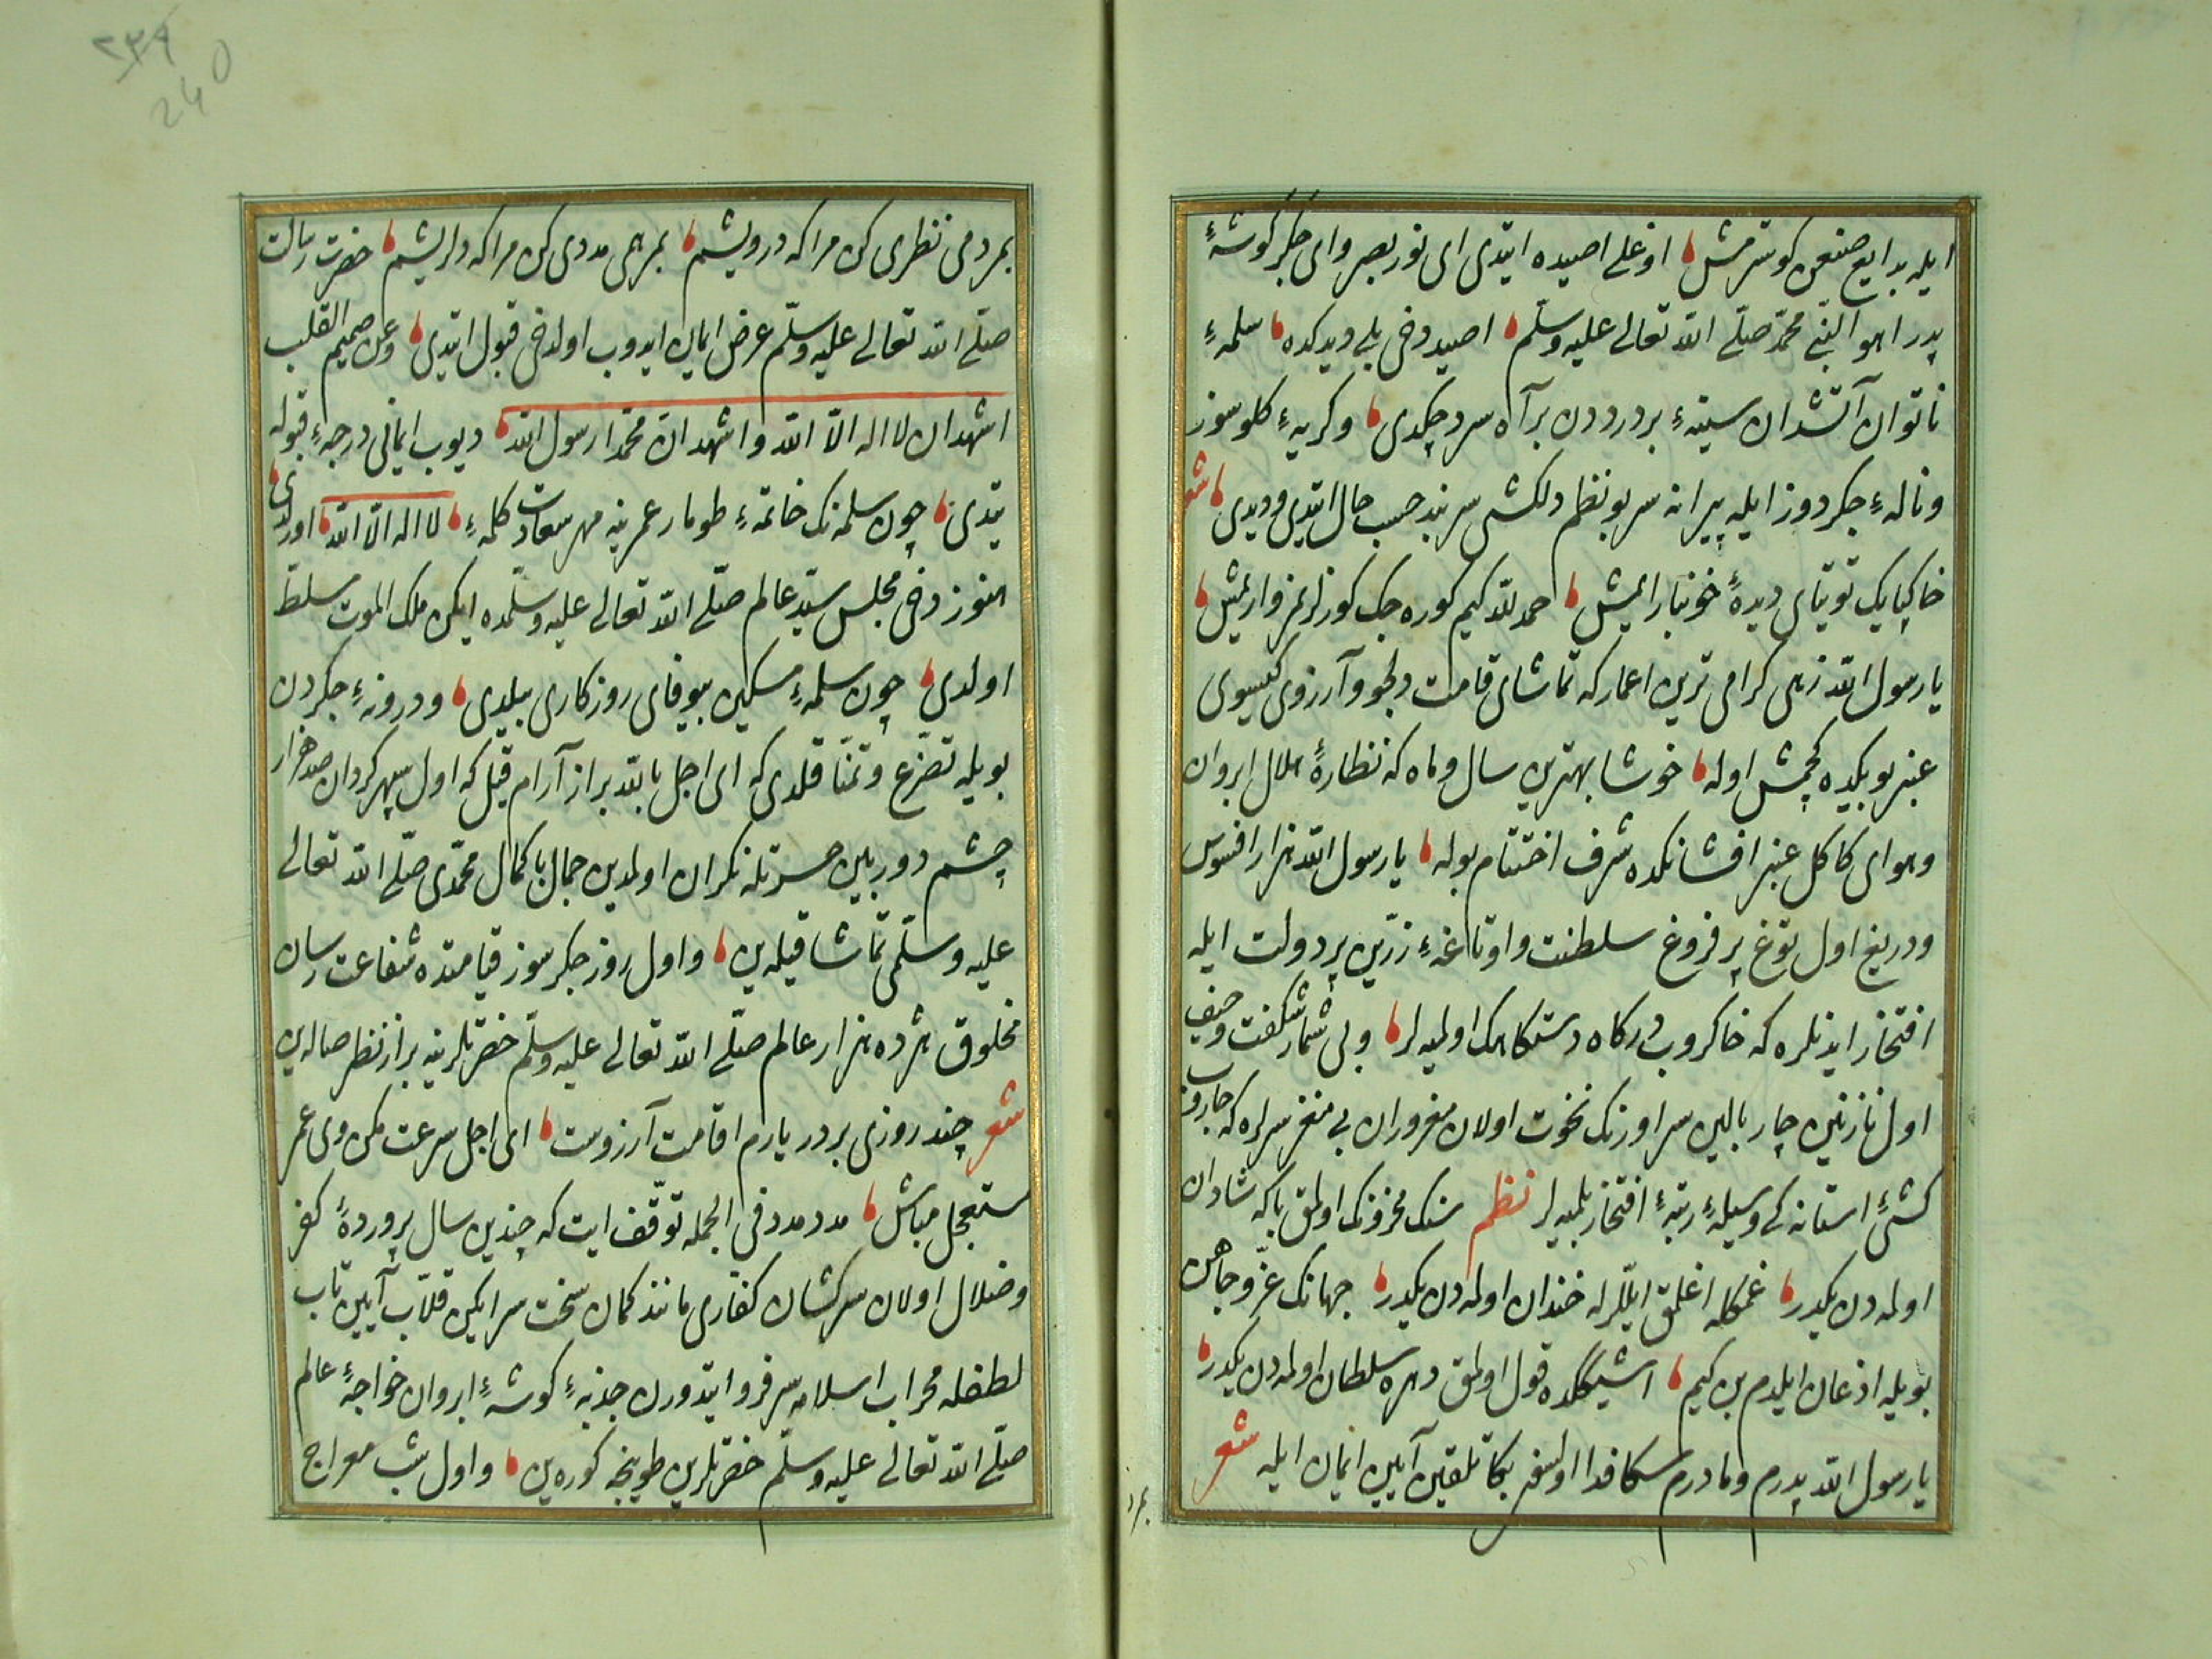 ایله بدایع صنعن كوسترمش اوغلی اصیده ایتدی ای نور بصر وای جگر كوشهٔ
پدر اهو النبی محمد صلی الله تعالی علیه وسلم اصید دخی بلی دیدكده سلمهٔ
ناتوان آتشدان سینهٔ پر درددن بر آه سرد چكدی وكریهٔ كلوسوز
ونالهٔ جكردوز ایله پیرانه سر بو نظم دلكشی سربند حسب حال ایتدی ودیدی شعر
خاكپایك توتیای دیدهٔ خونبار ایمش حمد لله كیم كوره جك كوزلرمز وار ایمش
یا رسول الله زهی كرامی ترین اعمار كه تماشای قامت دلجو وآرزوی كیسوی
عنبر بویكده كچمش اوله خوشا بهترین سال وماه كه نظارهٔ هلال ابروان
وهوای كاكل عنبر افشانكده شرف اختتام بوله یا رسول الله هزار افسوس
ودریغ اول توغ پر فروغ سلطنت واوتاغهٔ زرین پر دولت ایله
افتخار ایدنلره كه خاكروب دركاه دستكاهك اولمیه لر وبی شمار شكفت وحیف
اول نازنین چار بالین سر اورنك نخوت اولان مغروران بی مغز سرلره كه جاروب
كشئ استانه كی وسیلهٔ رتبهٔ افتخار بلمیه لر نظم سنك محزونك اولمق باكه شادان
اولمه دن یكدر غمكله اغلمق ایللرله خندان اولمه دن یكدر جهانك عز وجاهن
بویله اذعان ایلدم بن كیم اشیككده قول اولمق دهره سلطان اولمه دن یكدر
یا رسول الله پدرم ومادرم سكا فدا اولسون بكا تلقین آیین ایمان ایله شعر
بمرد
٢٣٩
240
بمردمی نظری كن مرا كه درویشم بمرهمی مددی كن مرا كه دلریشم حضرت رسالت
صلی الله تعالی علیه وسلم عرض ایمان ایدوب اولدخی قبول ایتدی وعن صمیم القلب
اشهد ان لا اله الا الله واشهد ان محمدا رسول الله دیوب ایمانی درجهٔ قبوله
یتدی چون سلمه نك خاتمهٔ طومار عمرینه مهر سعادت كلمهٔ لا اله الا الله اولدی
هنوز دخی مجلس سید عالم صلی الله تعالی علیه وسلمده ایكن ملك الموت مسلط
اولدی چون سلمهٔ مسكین بیوفای روزكاری بیلدی ودرونهٔ جكردن
بویله تضرع وتمنا قلدی كه ای اجل بالله براز آرام قیل كه اول سپهر كردان صد هزار
چشم دوربین حسرتله نكران اولمدین جمال باكمال محمدی صلی الله تعالی
علیه وسلمی تماشا قیله ین واول روز جكرسوز قیامتده شفاعت رسان
مخلوق هژده هزار عالم صلی الله تعالی علیه وسلم حضرتلرینه براز نظر صاله ین
شعر چند روزی بر در یارم اقامت آرزوست ای اجل سرعت مكن وی عمر
مستعجل مباش مدد مدد فی الجمله توقف ایت كه چندین سال پروردهٔ كفر
وضلال اولان سركشان كفاری مانند كمان سخت سر ایكن قلاب آیین تاب
لطفله محراب اسلامه سر فرو ایتدورن جذبهٔ كوشهٔ ابروان خواجهٔ عالم
صلی الله تعالی علیه وسلم حضرتلرین طوینجه كوره ین واول شب معراج